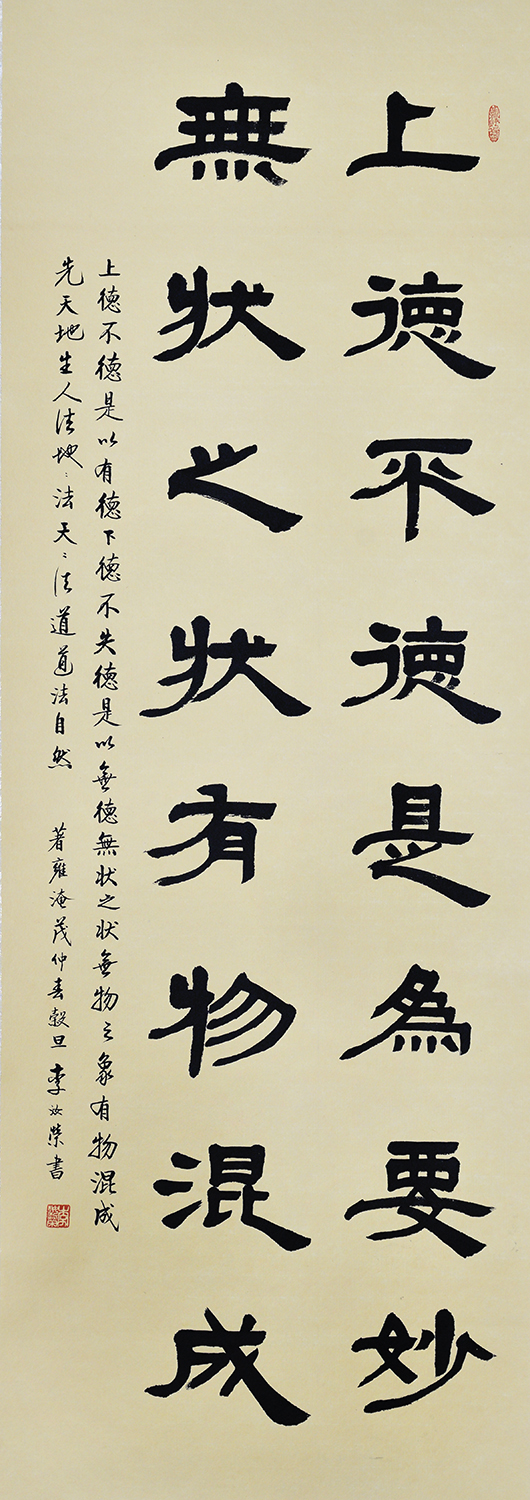 上德不德是為要妙
無狀之狀有物混成
上德不德是以有德下德不失德是以無德無状之状無物之象有物混成
先天地生人法地〻法天〻法道道法自然 著雍淹茂仲春穀旦 李汝榮書